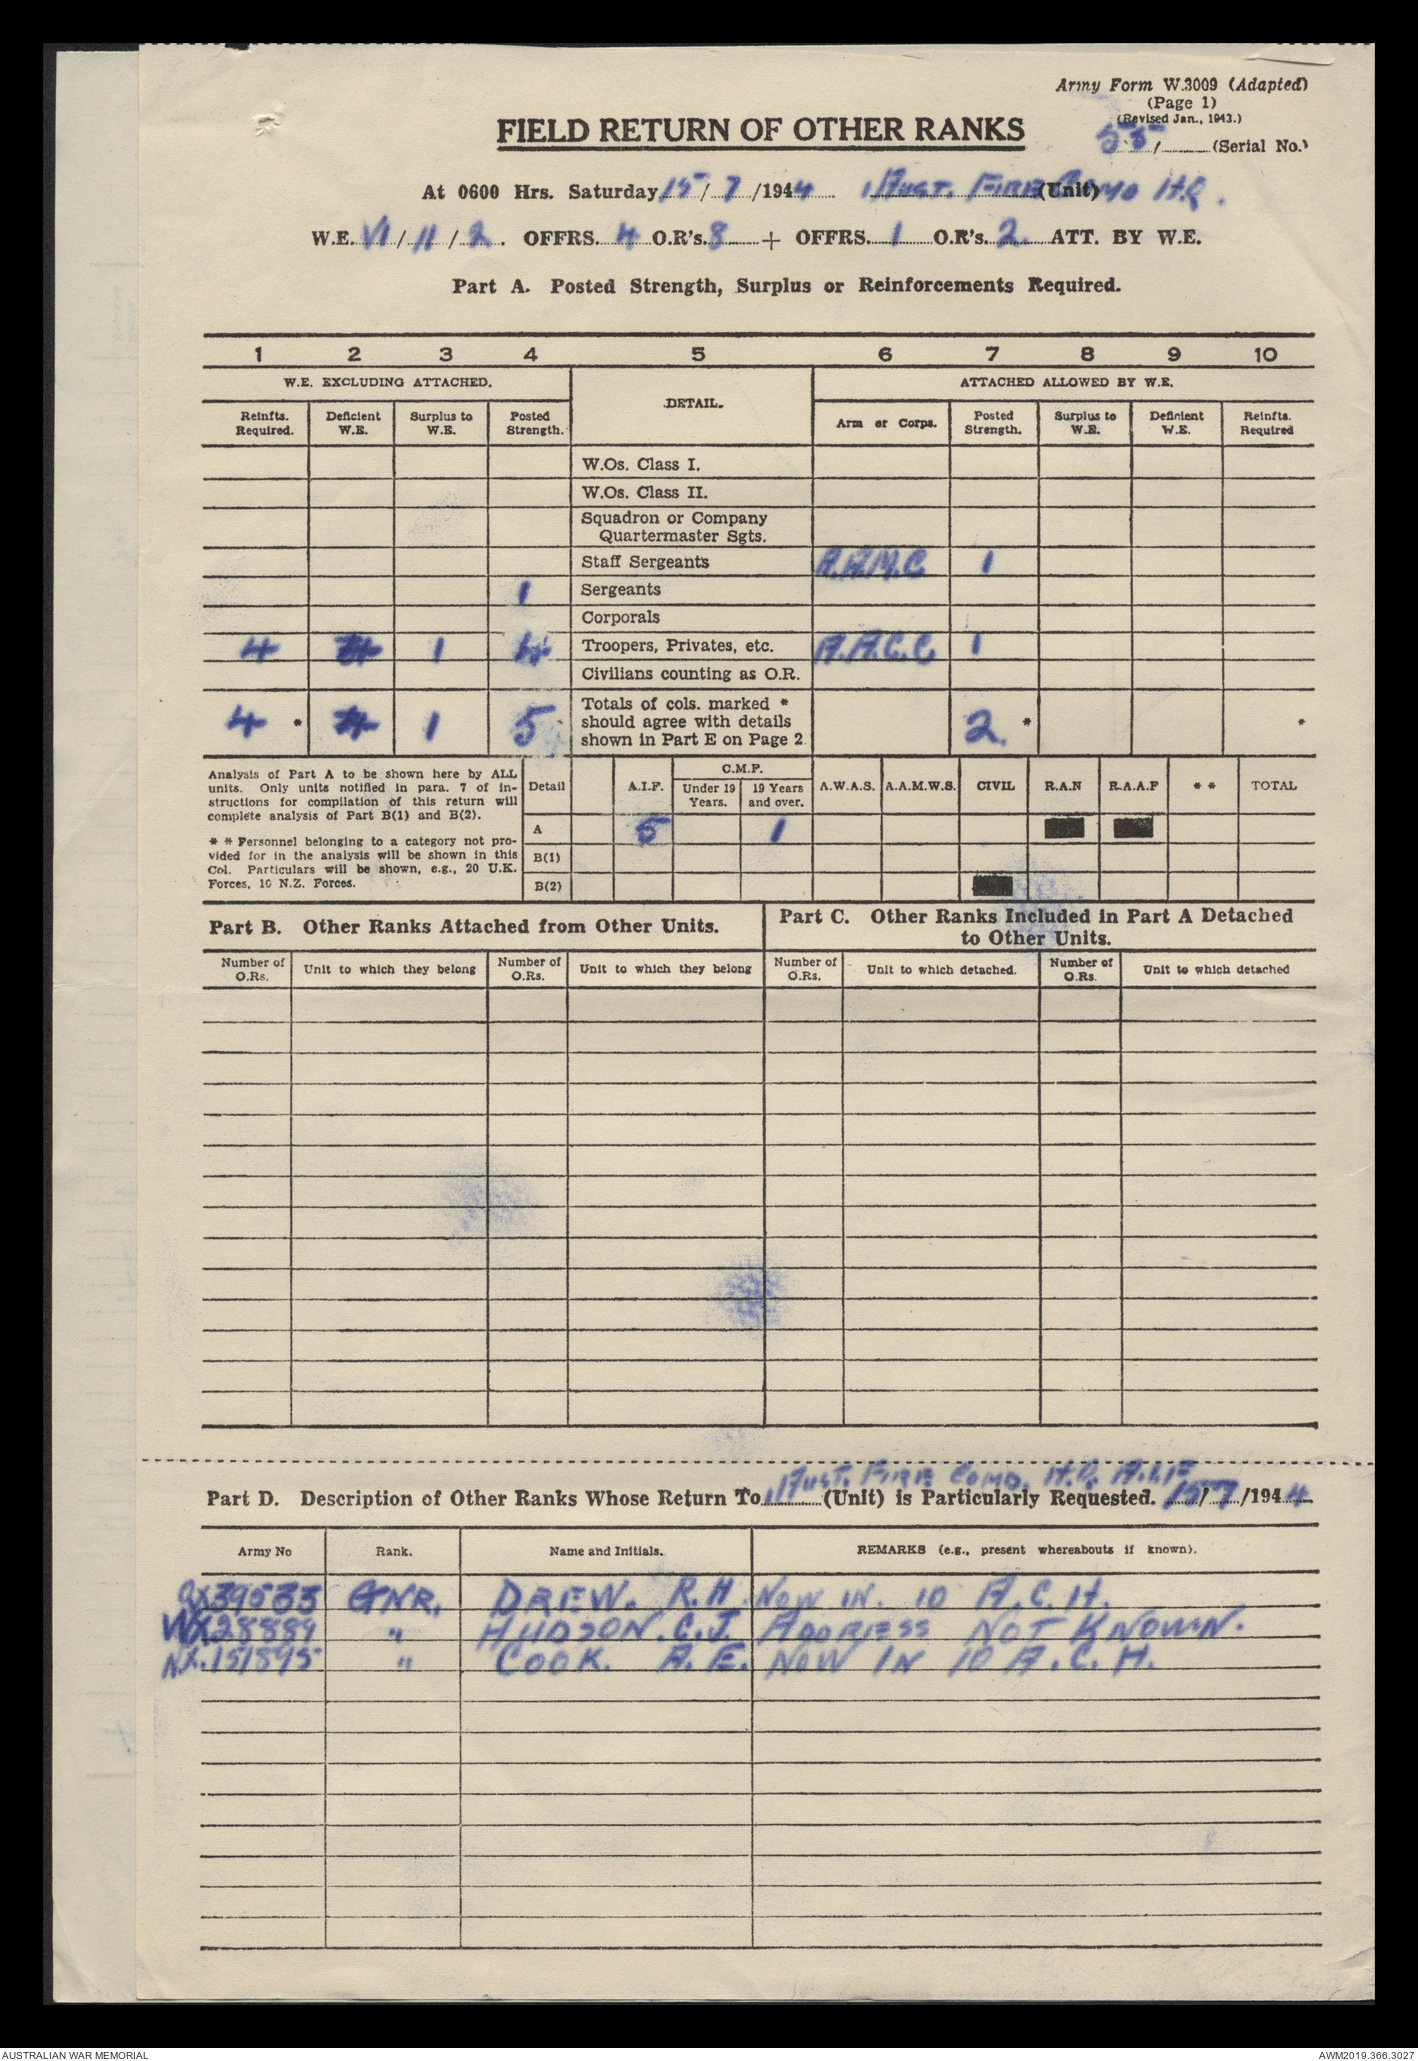 Army Form W.3009 (Adapted)
(Page 1)
(Revised Jan., 1943.)
FIELD RETURN OF OTHER RANKS
55/ (Serial No.)
At 0600 Hrs. Saturday 15/7/1944 1 Aust. Fire Comd H.Q. (Unit)
W.E. VI/11/2. OFFRS. 4 O.R's. 8 + OFFRS. 1 O.R's. 2. ATT. BY W.E.
Part A. Posted Strength, Surplus or Reinforcements Required.
1 2 3 4 5 6 7 8 9 10
W.E. EXCLUDING ATTACHED. DETAIL. ATTACHED ALLOWED BY W.E.
Reinfts. Required. Deficient W.E. Surplus to W.E. Posted Strength. Arm or Corps. Posted Strength. Surplus to W.E. Deficient W.E. Reinfts. Required
W.Os. Class I.
W.Os. Class II.
Squadron or Company
Quartermaster Sgts.
Staff Sergeants A.A.M.C 1
1 Sergeants
Corporals
4 4 1 4 Troopers, Privates, etc. A.A.C.C 1
Civilians counting as O.R.
4 * 4 1 5 Totals of cols. marked * should agree with details shown in Part E on Page 2. 2. * *
Analysis of Part A to be shown here by ALL
units. Only units notified in para. 7 of in-
structions for compilation of this return will
complete analysis of Part B(1) and B(2).
* * Personnel belonging to a category not pro-
vided for in the analysis will be shown in this
Col. Particulars will be shown, e.g., 20 U.K.
Forces, 10 N.Z. Forces.
Detail A.I.F. C.M.F. Under 19 Years. 19 Years and over. A.W.A.S. A.A.M.W.S. CIVIL R.A.N R.A.A.F * * TOTAL
A 5 1
B(1)
B(2)
Part B. Other Ranks Attached from Other Units.
Part C. Other Ranks Included in Part A Detached
to Other Units.
Number of O.Rs. Unit to which they belong Number of O.Rs. Unit to which they belong Number of O.Rs. Unit to which detached. Number of O.Rs. Unit to which detached
1 Aust. Fire Comd. H.Q. A.I.F
Part D. Description of Other Ranks Whose Return To (Unit) is Particularly Requested. 15/7/1944
Army No Rank. Name and Initials. REMARKS (e.g., present whereabouts if known).
QX39533 GNR. DREW. R.H. NOW IN. 10 A.C.H.
VX128889 " HUDSON. C.J. ADDRESS NOT KNOWN.
NX.151895 " COOK. A.E. NOW IN 10 A.C.H.
AUSTRALIAN WAR MEMORIAL
AWM2019.366.3027